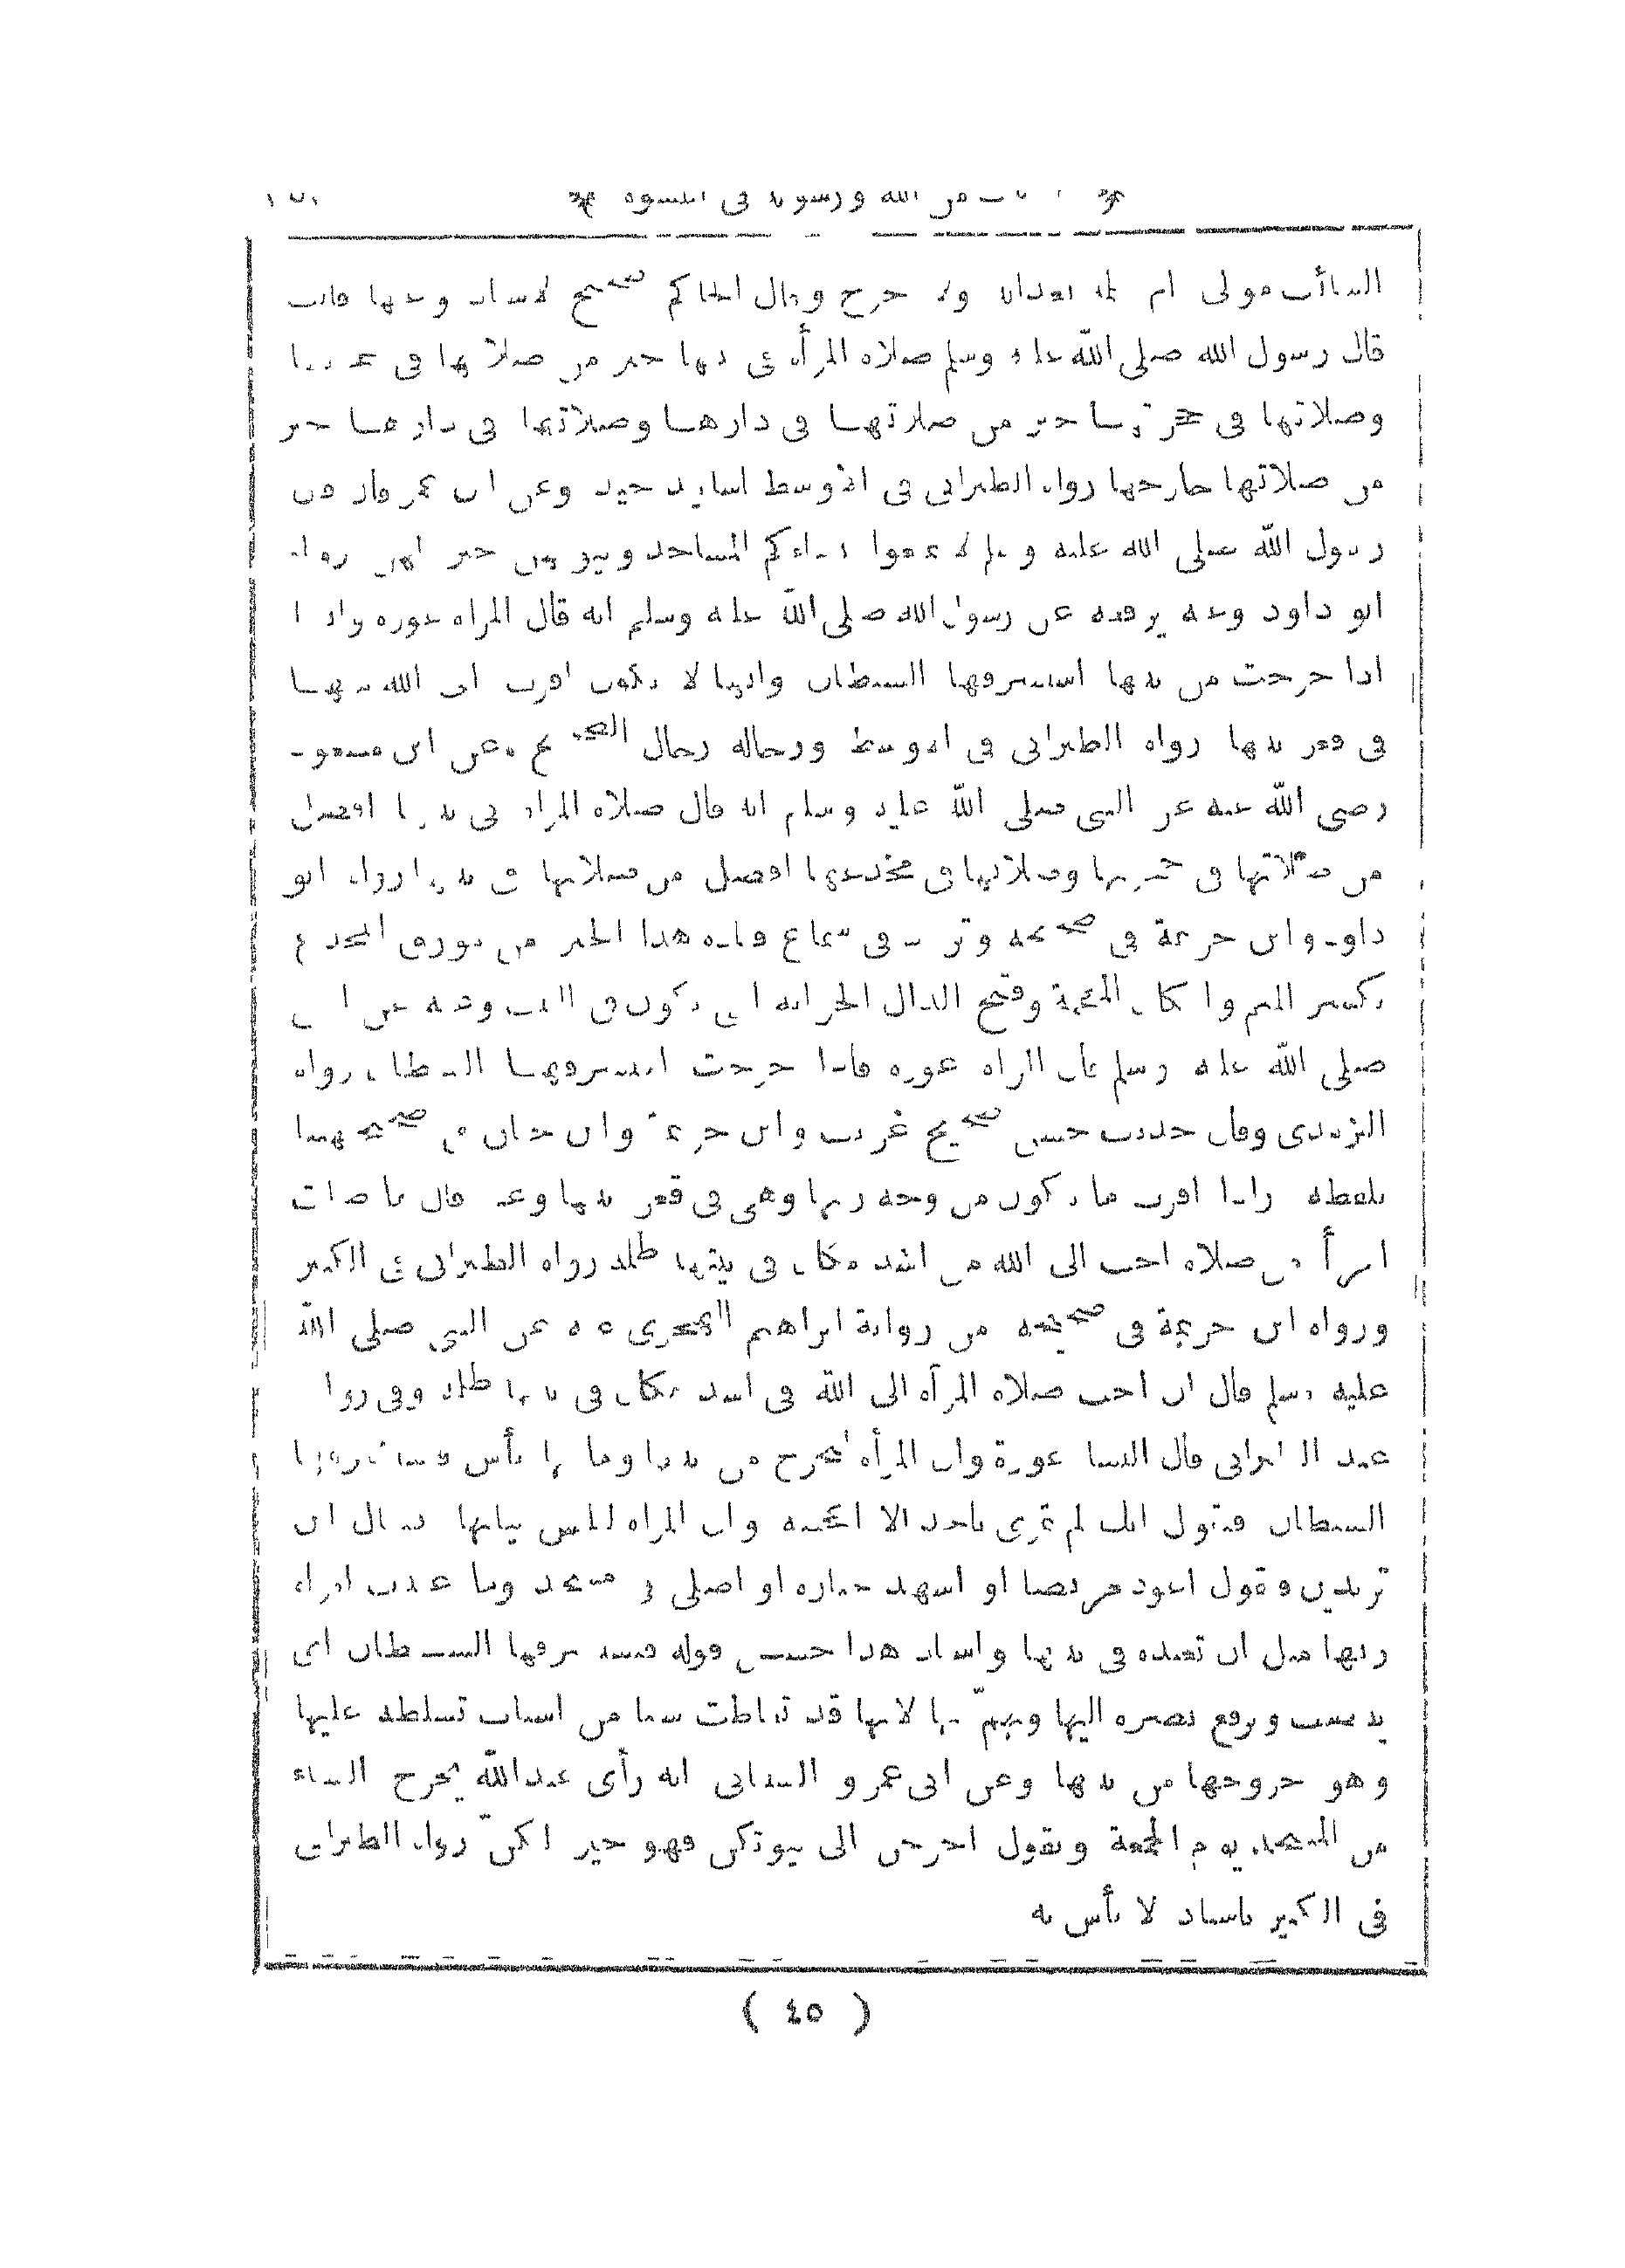 من الله ورسوله في النسوة
السائب مولى أم سلمة بعدالة ولا جرح وقال الحاكم صحيح الاسناد وعنها قالت
قال رسول الله صلى الله عليه وسلم صلاة المرأة فى بيتها خير من صلاتها فى حجرتها
وصلاتها فى حجرتها خير من صلاتها فى دارها وصلاتها فى دارها خير
من صلاتها خارجها رواه الطبرانى فى الاوسط باسناد جيد وعن ابن عمر قال قال
رسول الله صلى الله عليه وسلم لا تمنعوا نساءكم المساجد وبيوتهن خير لهن رواه
ابو داود وعنه يرفعه عن رسول الله صلى الله عليه وسلم انه قال المرأة عورة وانها
اذا خرجت من بيتها استشرفها الشيطان وانها لا تكون اقرب الى الله منها
فى قعر بيتها رواه الطبرانى فى الاوسط ورجاله رجال الصحيح وعن ابن مسعود
رضى الله عنه عن النبى صلى الله عليه وسلم انه قال صلاة المرأة فى بيتها افضل
من صلاتها فى حجرتها وصلاتها فى مخدعها افضل من صلاتها فى بيتها رواه ابو
داود وابن خزيمة فى صحيحه وتردد فى سماع قتادة هذا الخبر من مورق المخدع
بكسر الميم واسكان المعجمة وفتح الدال الخزانة التى تكون فى البيت وعنه عن النبى
صلى الله عليه وسلم قال المرأة عورة فاذا خرجت استشرفها الشيطان رواه
الترمذى وقال حديث حسن صحيح غريب وابن خزيمة وابن حبان فى صحيحيهما
بلفظه وزادا اقرب ما تكون من وجه ربها وهى فى قعر بيتها وعنه قال ما صلت
امرأة من صلاة احب الى الله من اشد مكان فى بيتها ظلمة رواه الطبرانى فى الكبير
ورواه ابن خزيمة فى صحيحه من رواية ابراهيم الهجرى عنه عن النبى صلى الله
عليه وسلم قال ان احب صلاة المرأة الى الله فى اشد مكان فى بيتها ظلمة وفى رواية
عند الطبرانى قال النساء عورة وان المرأة لتخرج من بيتها وما بها بأس فيستشرفها
الشيطان فيقول انك لم تمرى باحد الا اعجبته وان المرأة لتلبس ثيابها فيقال اين
تريدين فتقول اعود مريضا او اشهد جنازة او اصلى فى مسجد وما عبدت امرأة
ربها مثل ان تعبده فى بيتها واسناد هذا حسن قوله فيستشرفها الشيطان اى
ينتصب ويرفع بصره اليها ويهمّ بها لانها قد تعاطت سببا من اسباب تسلطه عليها
وهو خروجها من بيتها وعن ابى عمرو الشيبانى انه رأى عبدالله يخرج النساء
من المسجد يوم الجمعة ويقول اخرجن الى بيوتكن فهو خير لكنّ رواه الطبرانى
فى الكبير باسناد لا بأس به
( ٤٥ )